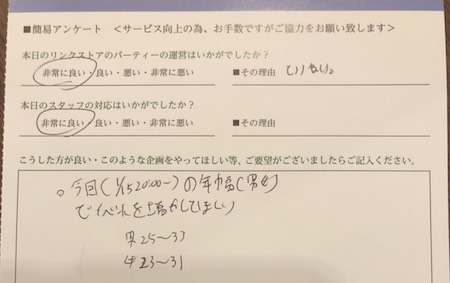 ■簡易アンケート ＜サービス向上の為、お手数ですがご協力をお願い致します＞
本日のリンクストアのパーティーの運営はいかがでしたか？
非常に良い・良い・悪い・非常に悪い ■その理由
本日のスタッフの対応はいかがでしたか？
非常に良い・良い・悪い・非常に悪い ■その理由
こうした方が良い・このような企画をやってほしい等、ご要望がございましたらご記入ください。
。今回(1/15 20:00〜)の年幅(男女)
でイベントを増やしてほしい
男25〜33
女23〜31